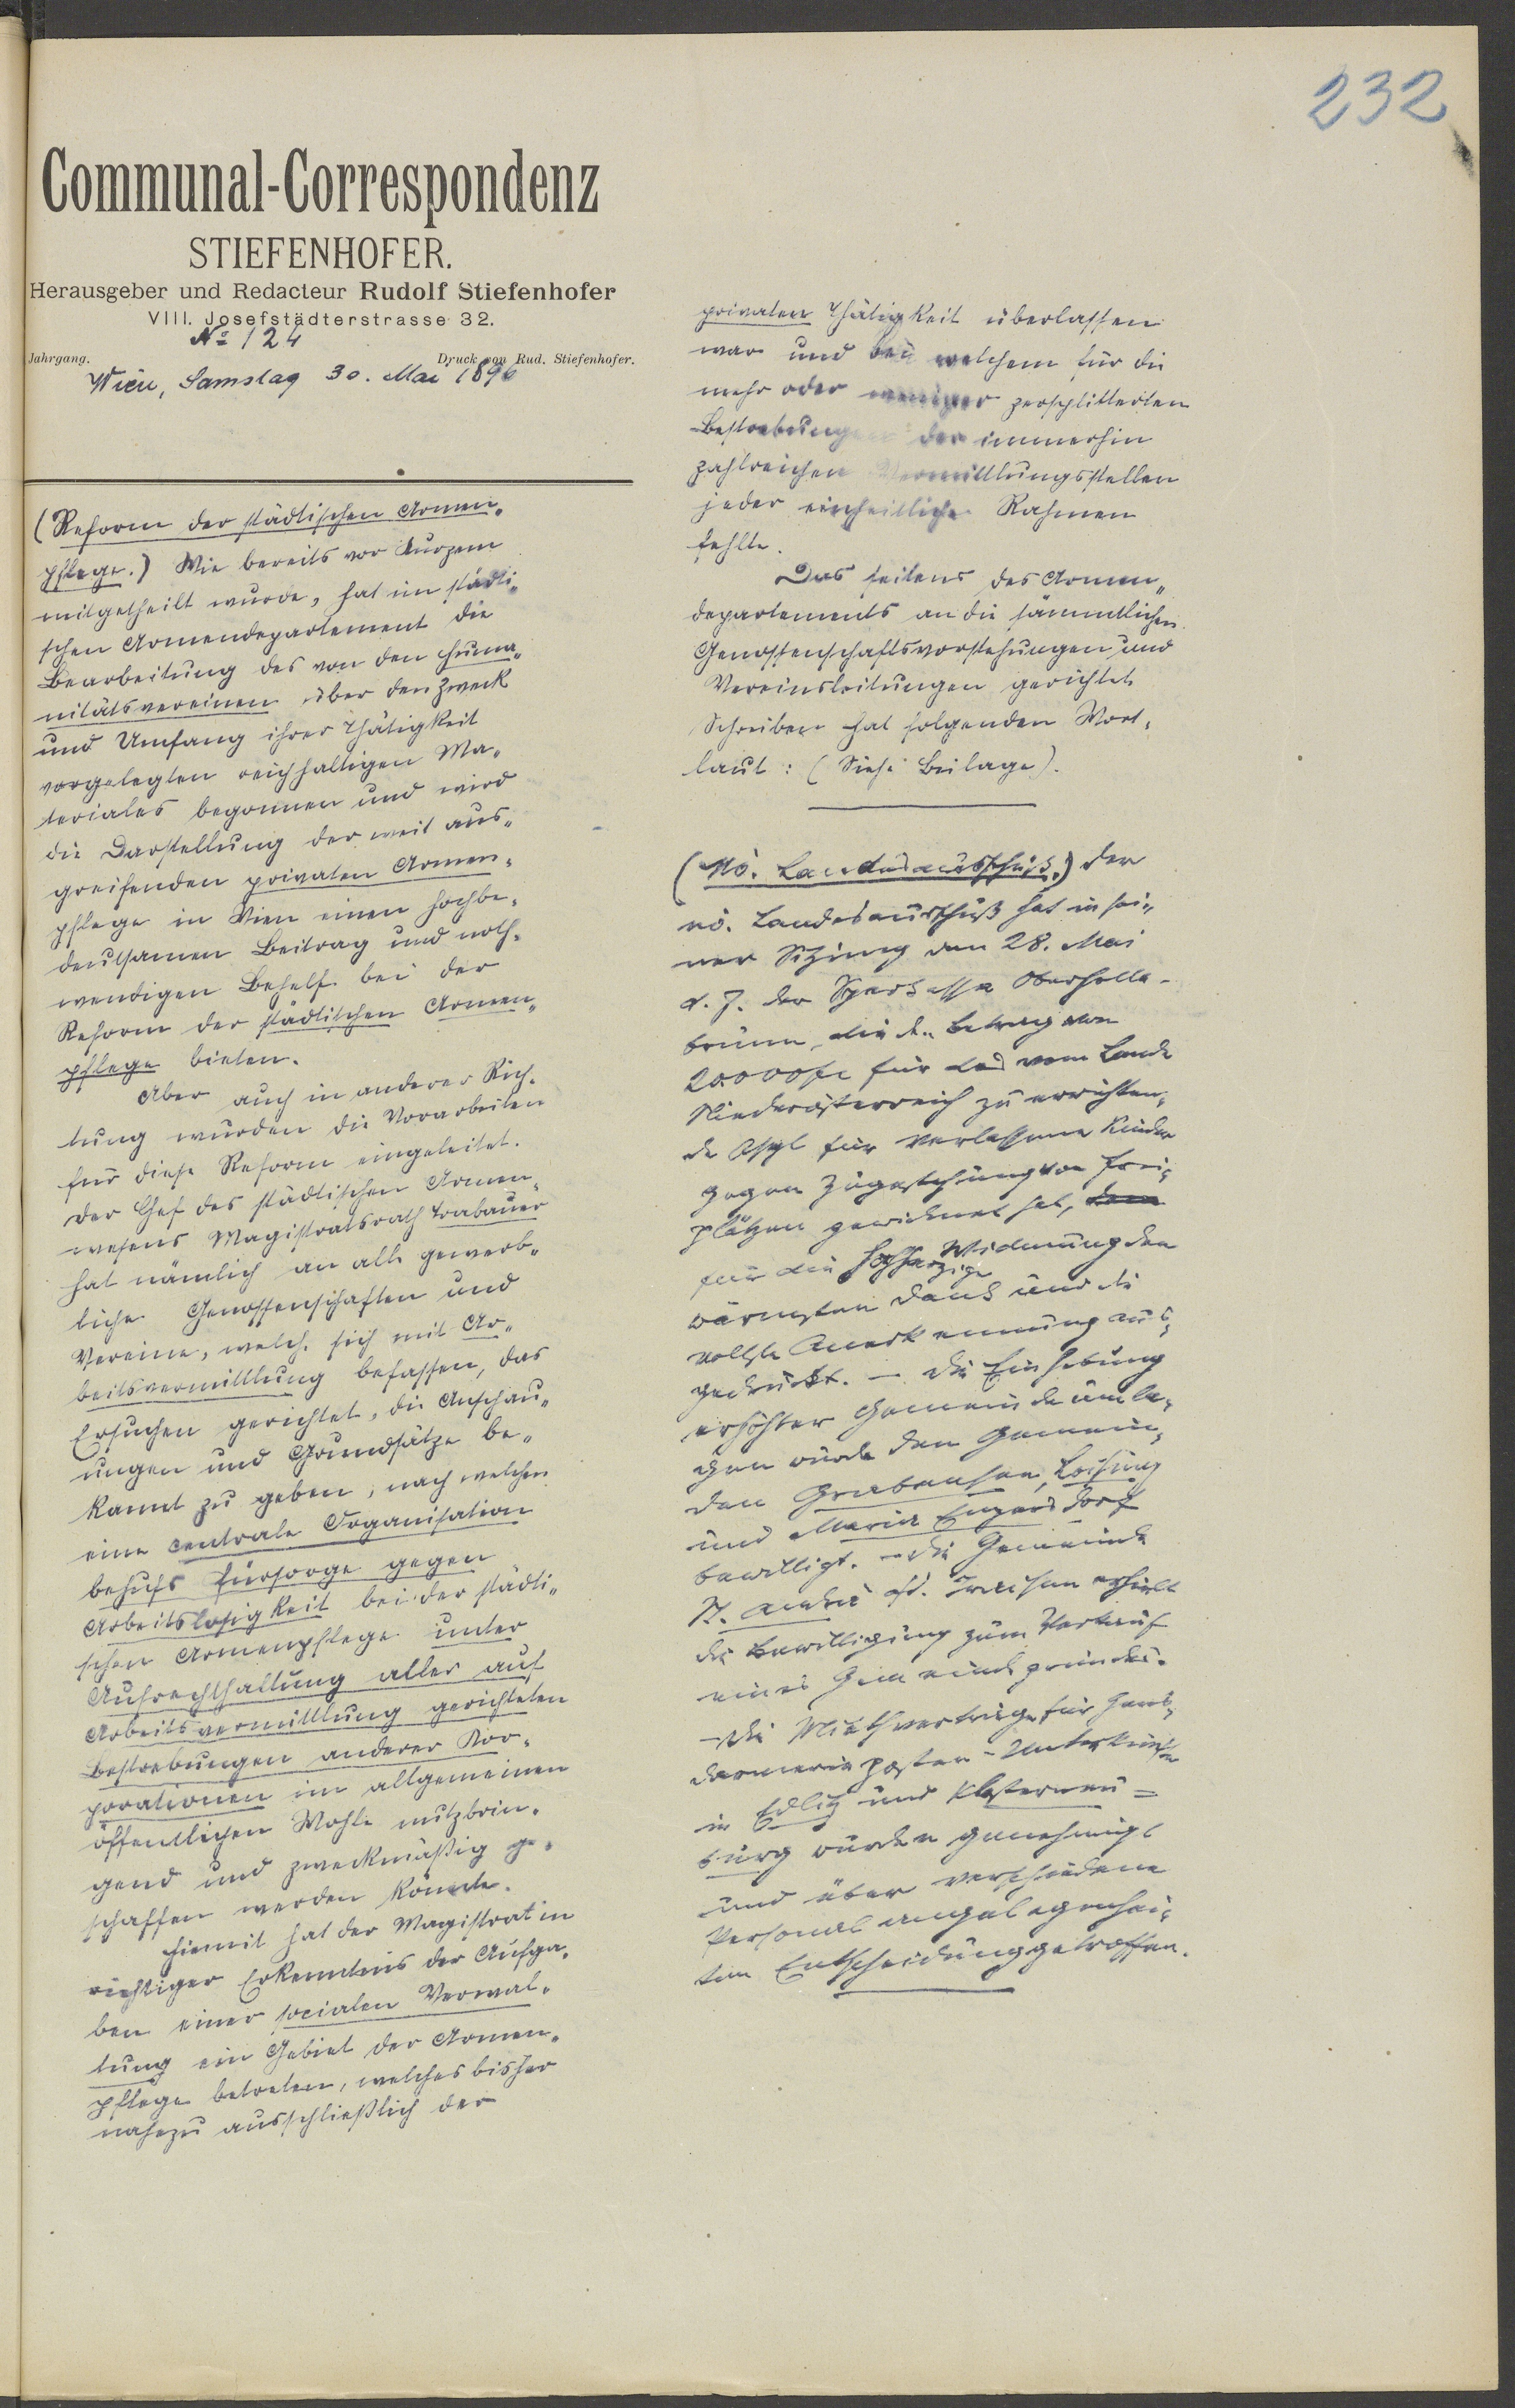 232
Communal-Correspondenz
STIEFENHOFER.
Herausgeber und Redacteur Rudolf Stiefenhofer
VIII. Josefstädterstrasse 32.
No 124
Jahrgang. Druck von Rud. Stiefenhofer.
Wien, Samstag 30. Mai 1896
(Reform der städtischen Armen-
pflege.) Wie bereits vor Kurzem
mitgetheilt wurde, hat im städti-
schen Armendepartement die
Bearbeitung des von den Huma-
nitätsvereinen über den Zweck
und Umfang ihrer Thätigkeit
vorgelegten reichhaltigen Ma-
teriales begonnen und wird
die Darstellung der weit aus-
greifenden privaten Armen-
pflege in Wien einen hochbe-
deutsamen Beitrag und noth-
wendigen Behelf bei der
Reform der städtischen Armen-
pflege bieten.
Aber auch in anderer Rich-
tung wurden die Vorarbeiten
für diese Reform eingeleitet.
Der Chef des städtischen Armen-
wesens Magistratsrath Trabauer
hat nämlich an alle gewerb-
liche Genossenschaften und
Vereine, welche sich mit Ar-
beitsvermittlung befassen, das
Ersuchen gerichtet, die Anschau-
ungen und Grundsätze be-
kannt zu geben, nach welchen
eine centrale Organisation
behufs Fürsorge gegen
Arbeitslosigkeit bei der städti-
schen Armenpflege unter
Aufrechthaltung aller auf
Arbeitsvermittlung gerichteten
Bestrebungen anderer Kor-
porationen im allgemeinen
öffentlichen Wohle nutzbrin-
gend und zweckmäßig ge-
schaffen werden könnte.
Hiemit hat der Magistrat in
richtiger Erkenntnis der Aufga-
ben einer socialen Verwal-
tung ein Gebiet der Armen-
pflege betreten, welches bisher
nahezu ausschließlich der
privaten Thätigkeit überlassen
war und bei welchem für die
mehr oder weniger zersplitterten
Bestrebungen der immerhin
zahlreichen Vermittlungsstellen
jeder einheitliche Rahmen
fehlte.
Das seitens des Armen-
departements an die sämmtlichen
Genossenschaftsvorstehungen und
Vereinsleitungen gerichtete
Schreiben hat folgenden Wort-
laut: (Siehe Beilage).
(Nö. Landesausschuß.) Der
nö. Landesausschuß hat in sei-
ner Sitzung vom 28. Mai
d. J. der Sparkasse Oberholla-
brunn, die den Betrag von
20.000 fl für das vom Lande
Niederösterreich zu errichten-
de Asyl für verlassene Kinder
gegen Zugestehung von Frei-
plätzen gewidmet hat,
für die hochherzige Widmung den
wärmsten Dank und die
vollste Anerkennung aus-
gedrückt. – Die Einhebung
erhöhter Gemeindeumla-
gen wurde den Gemein-
den Grabensee, Loosing
und Maria Enzersdorf
bewilligt. – Die Gemeinde
St. Andrä a/d. Traisen erhielt
die Bewilligung zum Verkauf
eines Gemeindegrundes.
– Die Miethverträge für Gens-
darmerieposten-Unterkünfte
in Edlitz und Klosterneu-
burg wurden genehmigt
und über verschiedene
Personalangelegenhei-
ten Entscheidung getroffen.